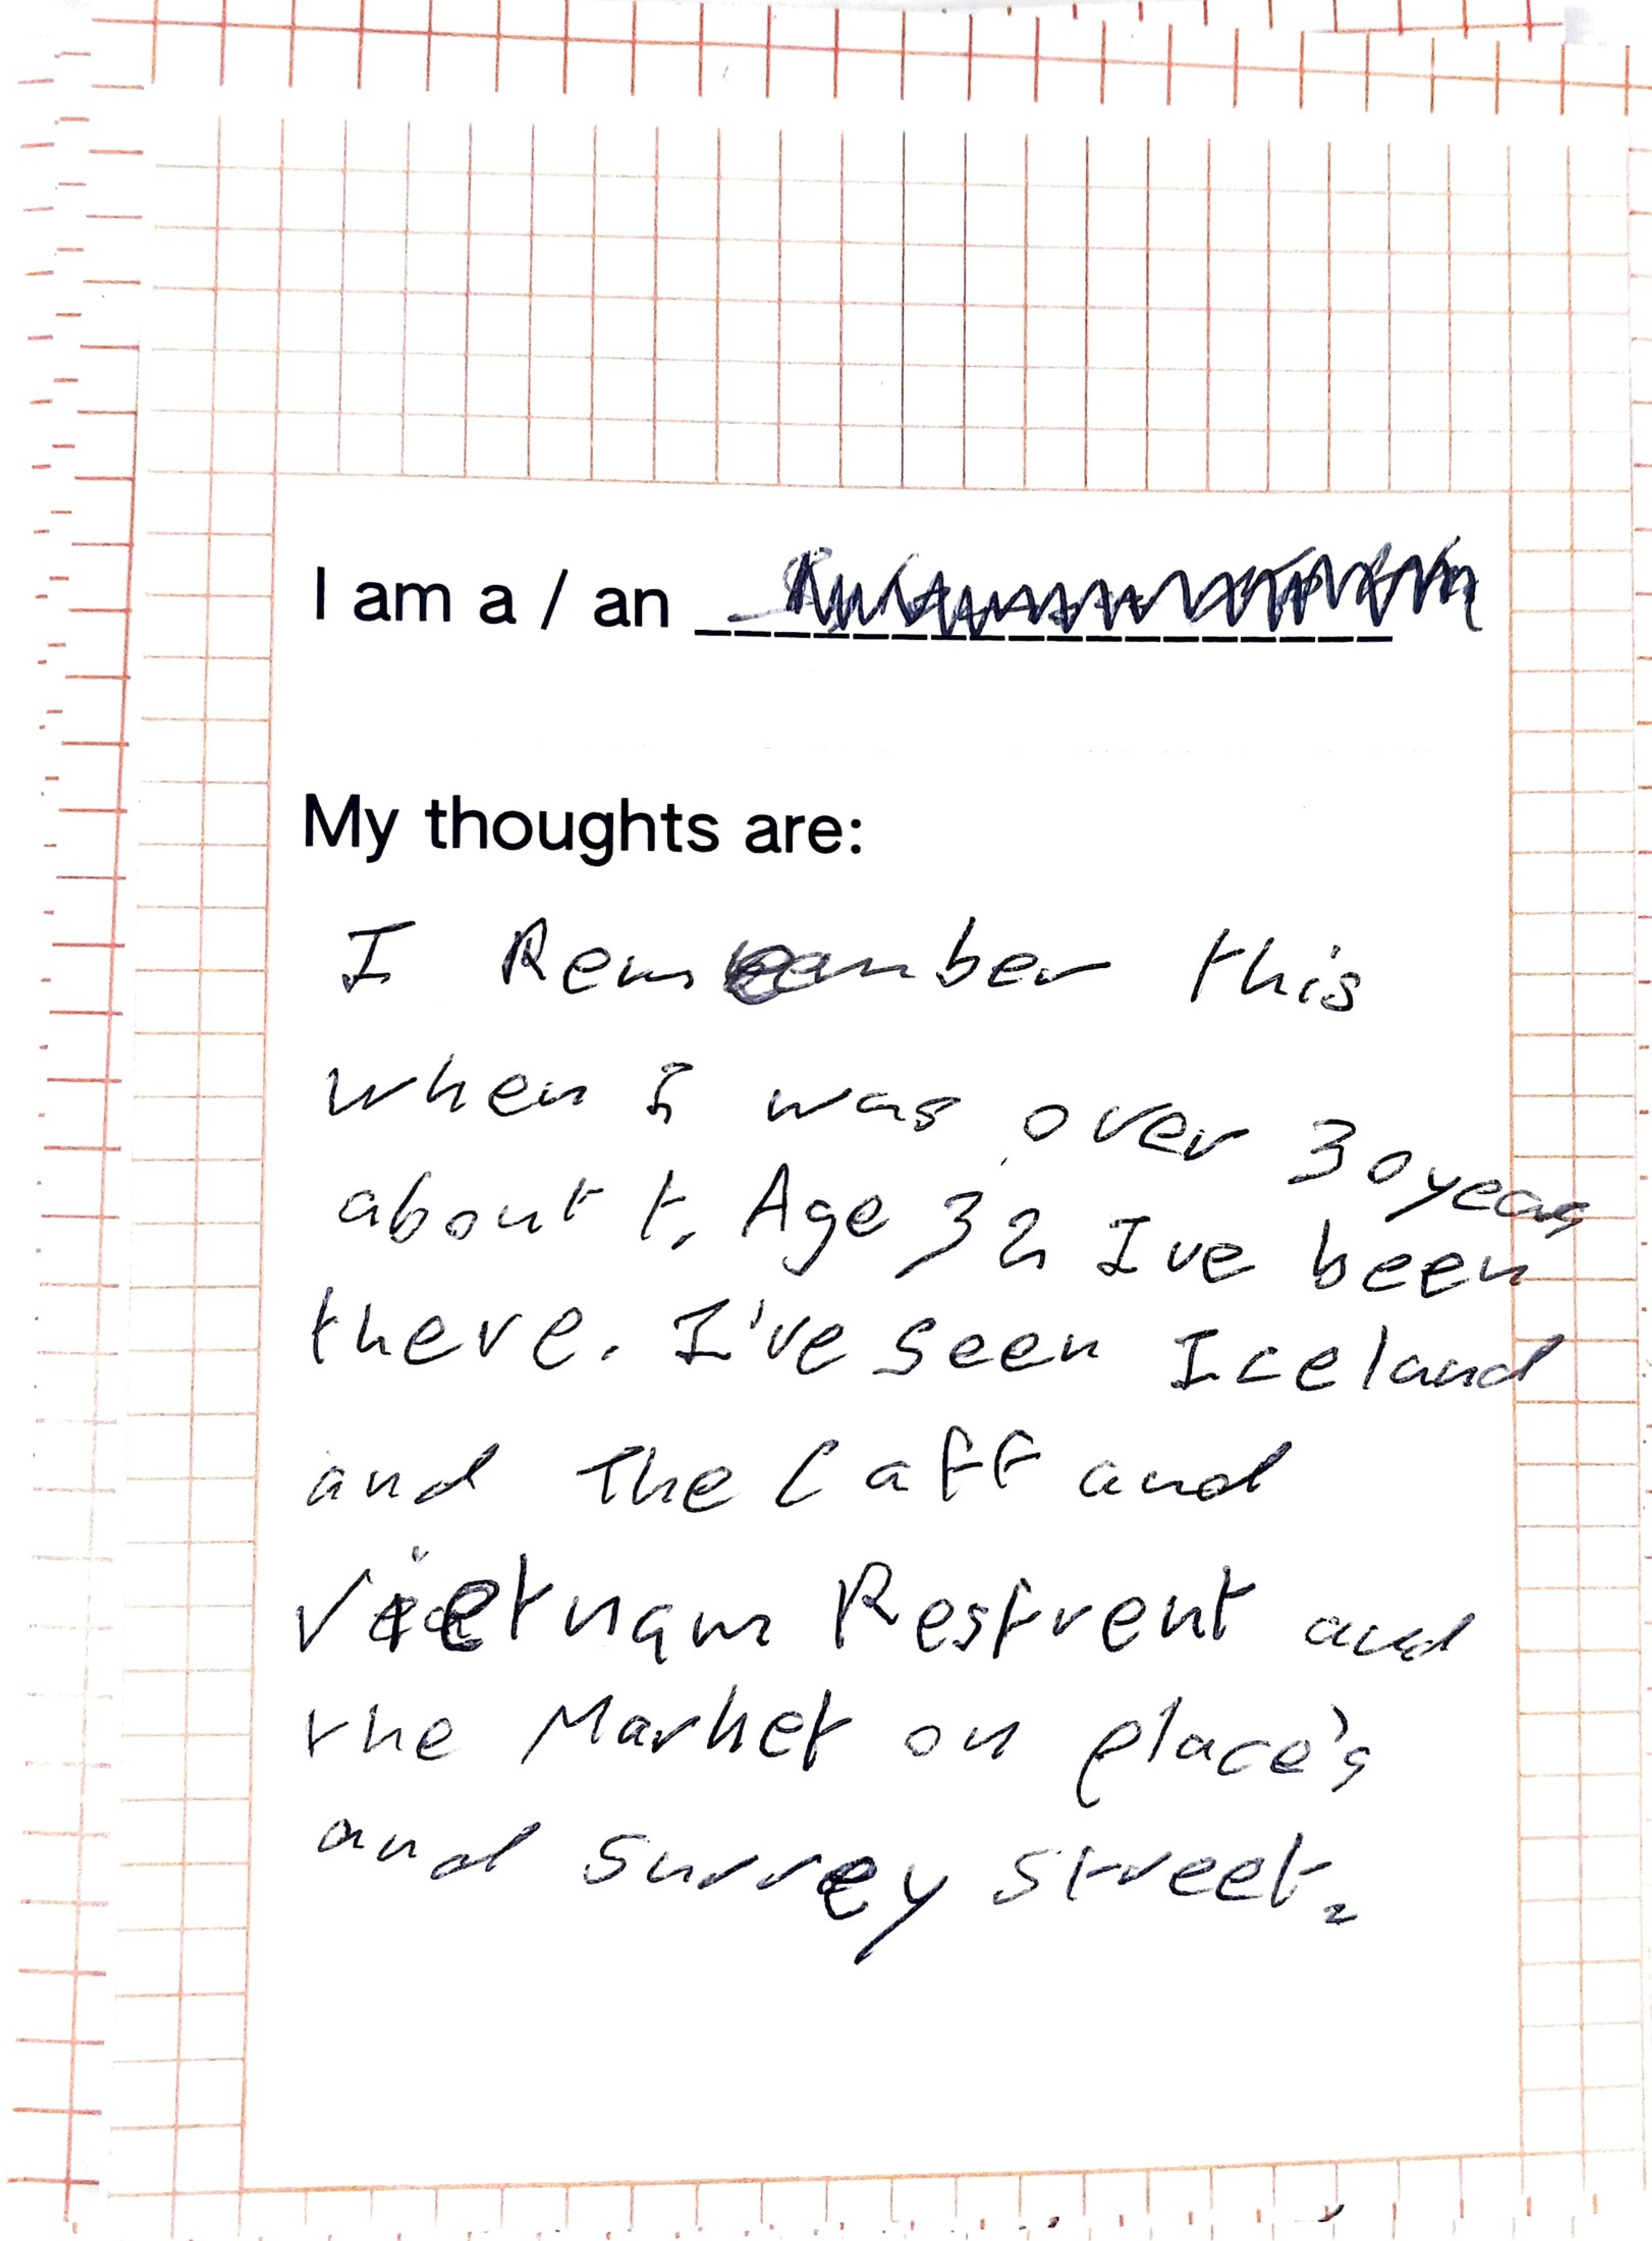 I am a / an
My thoughts are:
I Remember this
when I was over 30 years
about t. Age 32 Ive been
there. I've seen Iceland
and The Caff and
Vietnam Restrent and
the Market on place's
and Surrey Street.